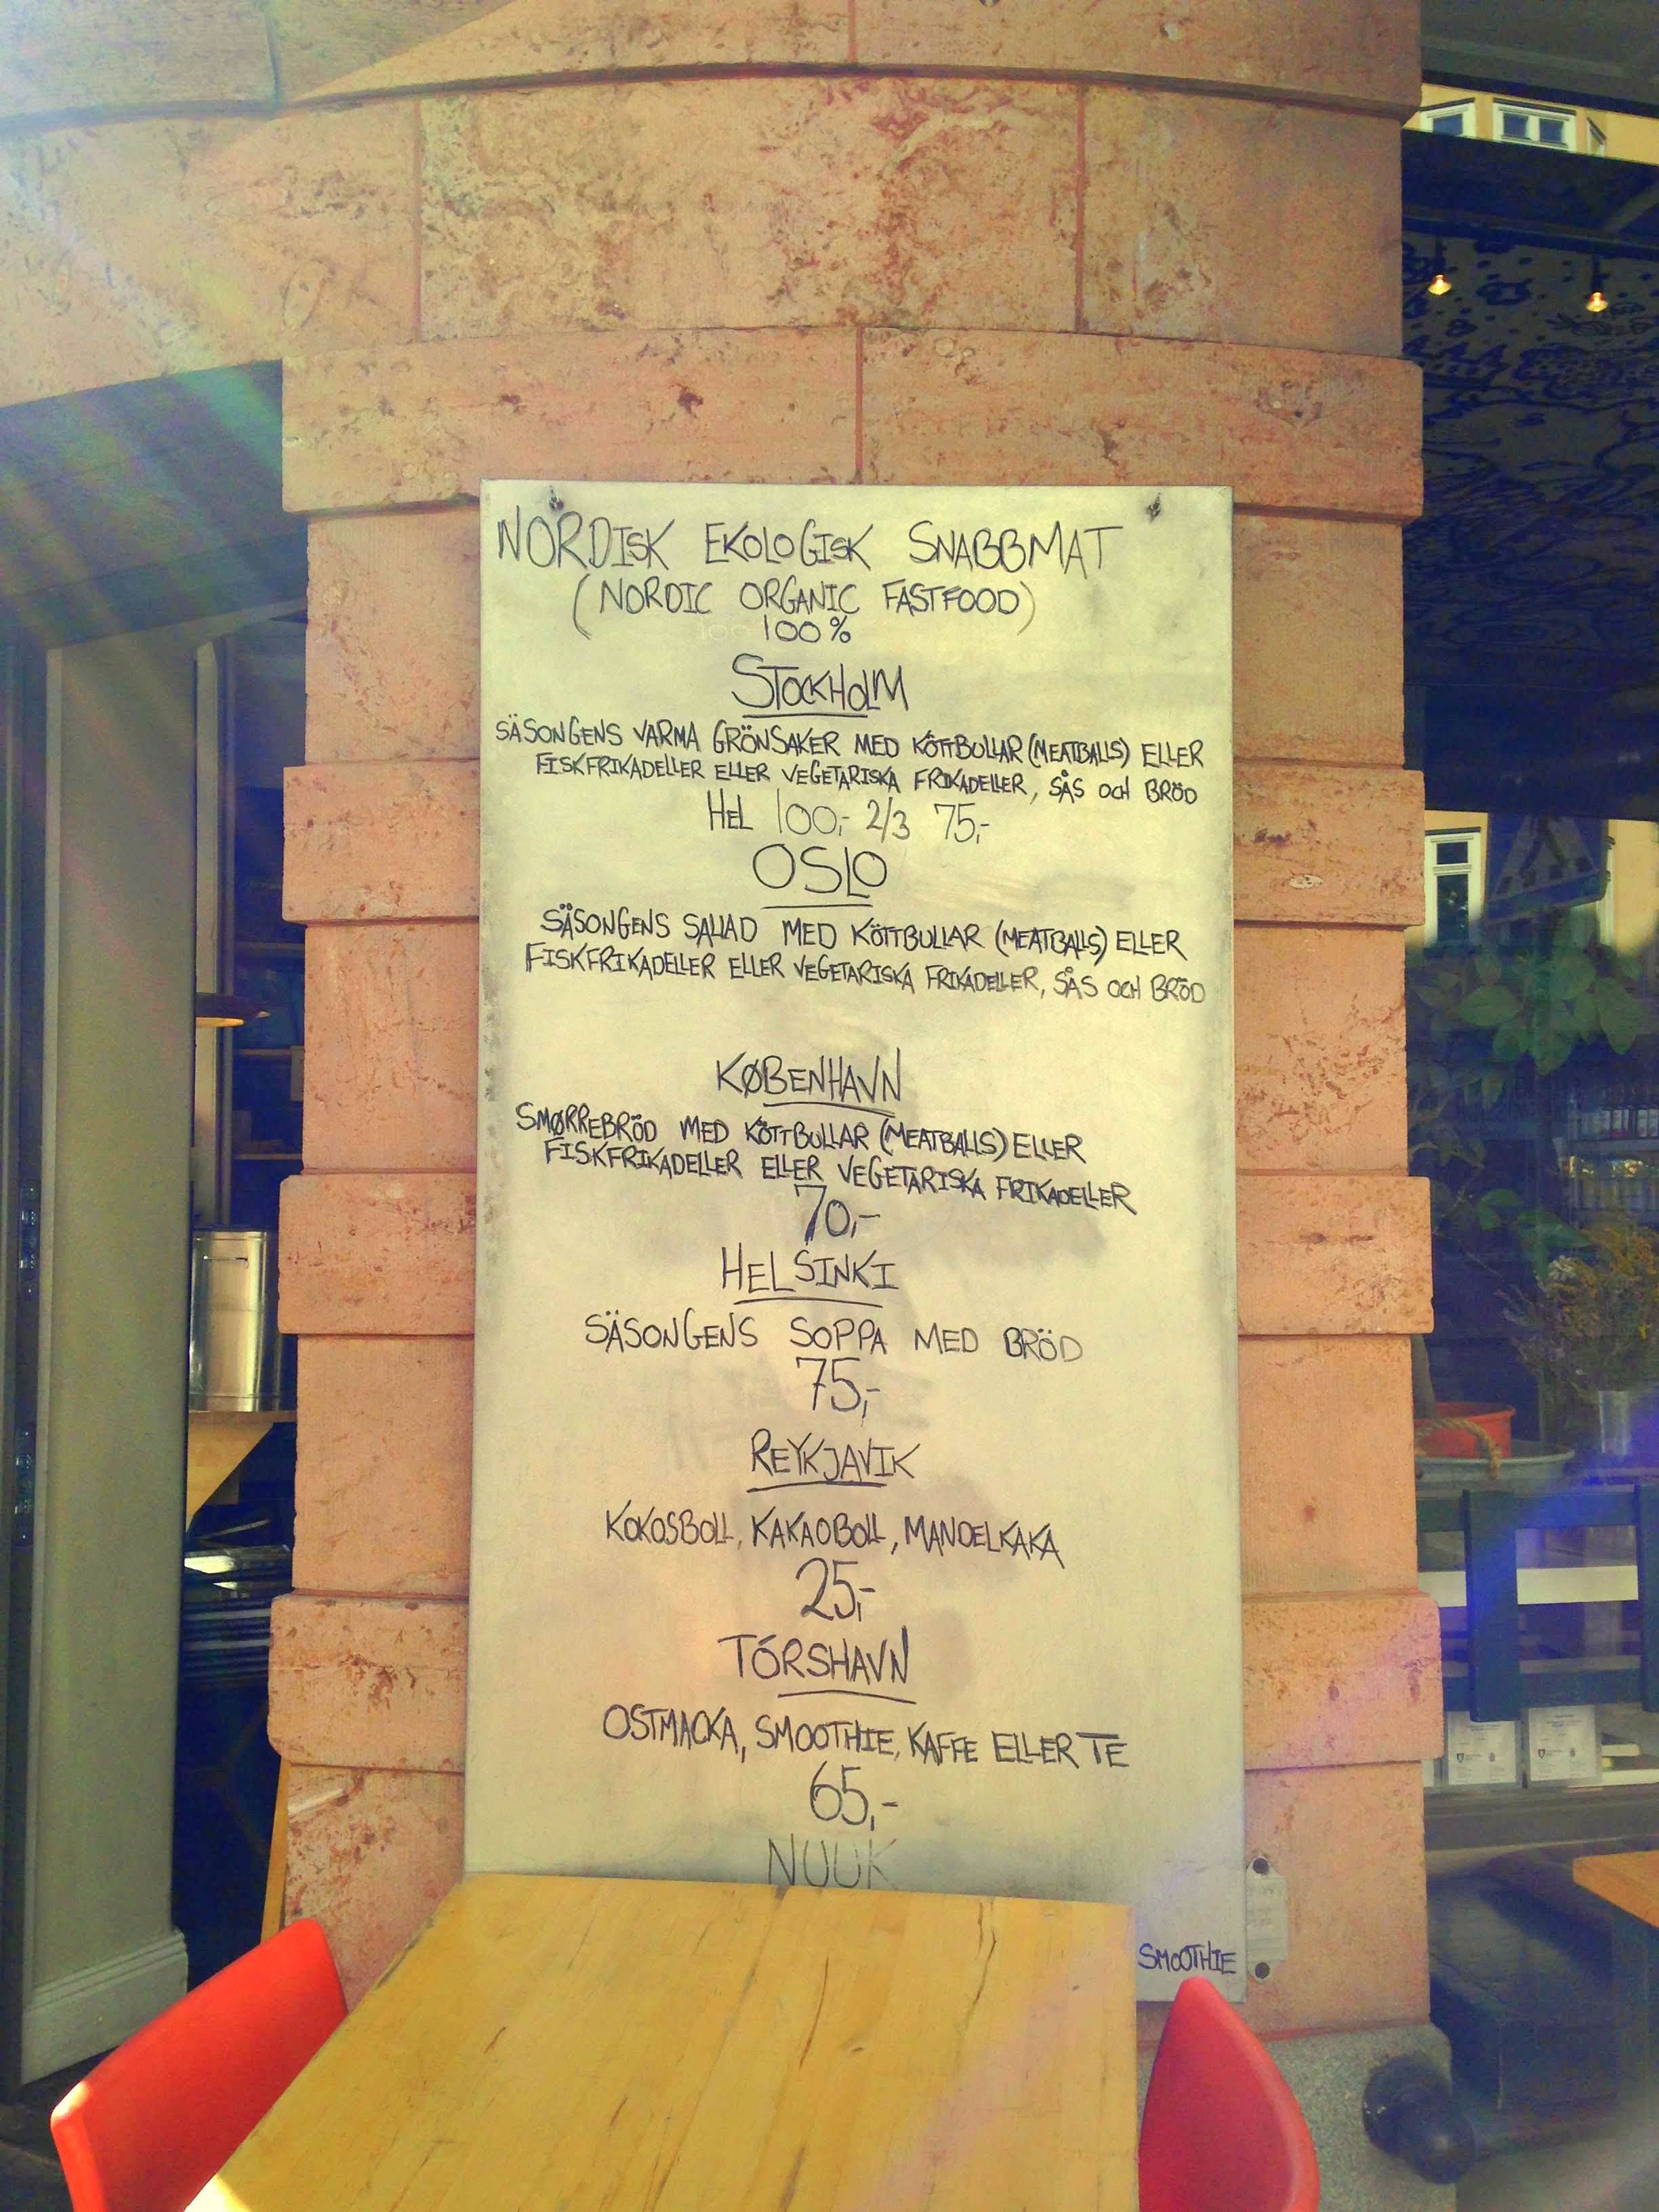 NORDISK EKOLOGISK SNABBMAT
(NORDIC ORGANIC FASTFOOD)
100%
STOCKHOLM
SÄSONGENS VARMA GRÖNSAKER MED KÖTTBULLAR (MEATBALLS) ELLER
FISKFRIKADELLER ELLER VEGETARISKA FRIKADELLER, SÅS OCH BRÖD
HEL 100,- 2/3 75,-
OSLO
SÄSONGENS SALLAD MED KÖTTBULLAR (MEATBALLS) ELLER
FISKFRIKADELLER ELLER VEGETARISKA FRIKADELLER, SÅS OCH BRÖD
KØBENHAVN
SMØRREBRÖD MED KÖTTBULLAR (MEATBALLS) ELLER
FISKFRIKADELLER ELLER VEGETARISKA FRIKADELLER
70,-
HELSINKI
SÄSONGENS SOPPA MED BRÖD
75,-
REYKJAVIK
KOKOSBOLL, KAKAOBOLL, MANDELKAKA
25,-
TÓRSHAVN
OSTMACKA, SMOOTHIE, KAFFE ELLER TE
65,-
NUUK
SMOOTHIE